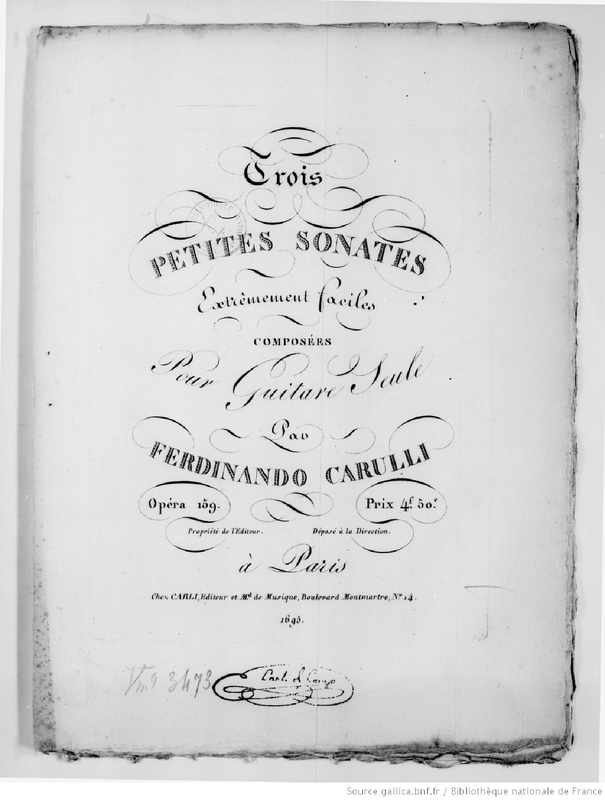 Trois
PETITES SONATES
Extrêmement faciles
COMPOSÉES
Pour Guitare Seule
Par
FERDINANDO CARULLI
Opéra 159. Prix 4f 50c
Propriété de l'Editeur. Déposé à la Direction.
à Paris
Chez CARLI, Editeur et Md de Musique, Boulevard Montmartre, No 14.
1695.
Vm9 3473
Source gallica.bnf.fr / Bibliothèque nationale de France